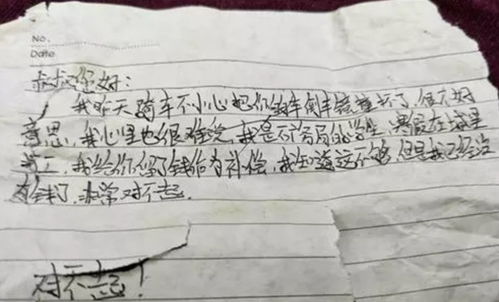 No.
Date
叔叔您好：
我昨天骑车不小心把你的车倒车镜撞坏了，很不好
意思，我心里也很难受，我是不富的学生，寒假在城里
打工，我给你留了钱作为补偿，我知道这不够，但是我已经没
有钱了，非常对不起。
对不起！